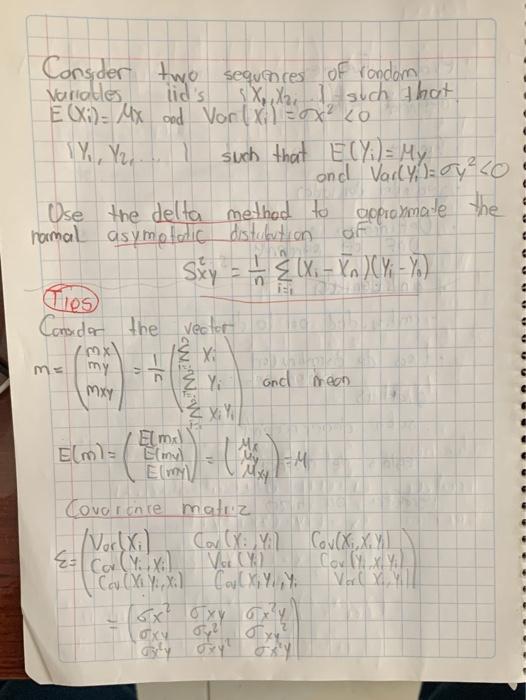 Consider two sequences of random
variables iid's {X₁, X₂, ...} such that
E(Xi) = Mx and Var(Xi) = σx² < 0
{Y₁, Y₂, ... } such that E(Yi) = My
and Var(Yi) = σy² < 0
Use the delta method to approximate the
normal asymptotic distribution of
S²xy = 1/n Σ(i=1 to n) (Xi - X̄n)(Yi - Ȳn)
Tips
Consider the vector
m = (mx, my, mxy) = 1/n (Σ Xi, Σ Yi, Σ XiYi) and mean
E(m) = (E(mx), E(my), E(my)) = (Mx, My, Mxy) = M
Covariance matriz
Σ = (Var(Xi) Cov(Xi, Yi) Cov(Xi, XiYi)
Cov(Yi, Xi) Var(Yi) Cov(Yi, XiYi)
Cov(XiYi, Xi) Cov(XiYi, Yi) Var(XiYi))
= (σx² σxy σx²y
σxy σy² σxy²
σx²y σxy² σx²y)